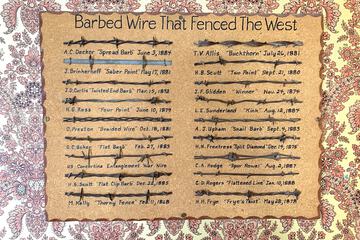 Barbed Wire That Fenced The West
A.C. Decker "Spread Barb" June 3, 1884
J. Brinkerhoff "Saber Point" May 17, 1881
J.D. Curtis "Twisted End Barb" Mar. 15, 1892
H.G. Ross "Four Point" June 10, 1879
D. Preston "Braided Wire" Oct. 18, 1881
O.C. Baker "Flat Barb" Feb. 27, 1883
US Concertina Entanglement War Wire
H.B. Scutt "Flat Clip Barb" Dec. 22, 1885
M. Kelly "Thorny Fence" Feb. 11, 1868
T.V. Allis "Buckthorn" July 26, 1881
H.B. Scutt "Two Point" Sept. 21, 1880
J.F. Glidden "Winner" Nov. 24, 1874
L.E. Sunderland "Kink" Aug. 12, 1884
A.J. Upham "Snail Barb" Sept. 4, 1883
H.N. Frentress "Split Diamond" Dec. 14, 1875
C.A. Hodge "Spur Rowel" Aug. 2, 1887
C.D. Rogers "Flattened Line" Jan. 10, 1888
H.H. Frye "Frye's Twist" May 28, 1878